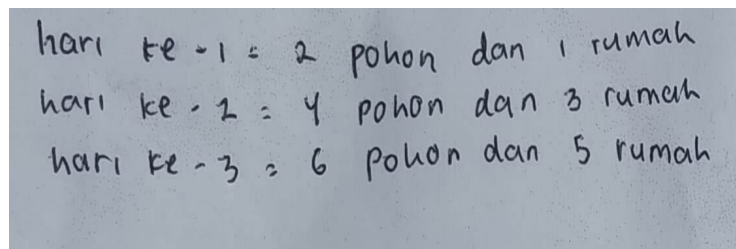 hari ke - 1 = 2 pohon dan 1 rumah
hari ke - 2 = 4 pohon dan 3 rumah
hari ke - 3 = 6 pohon dan 5 rumah